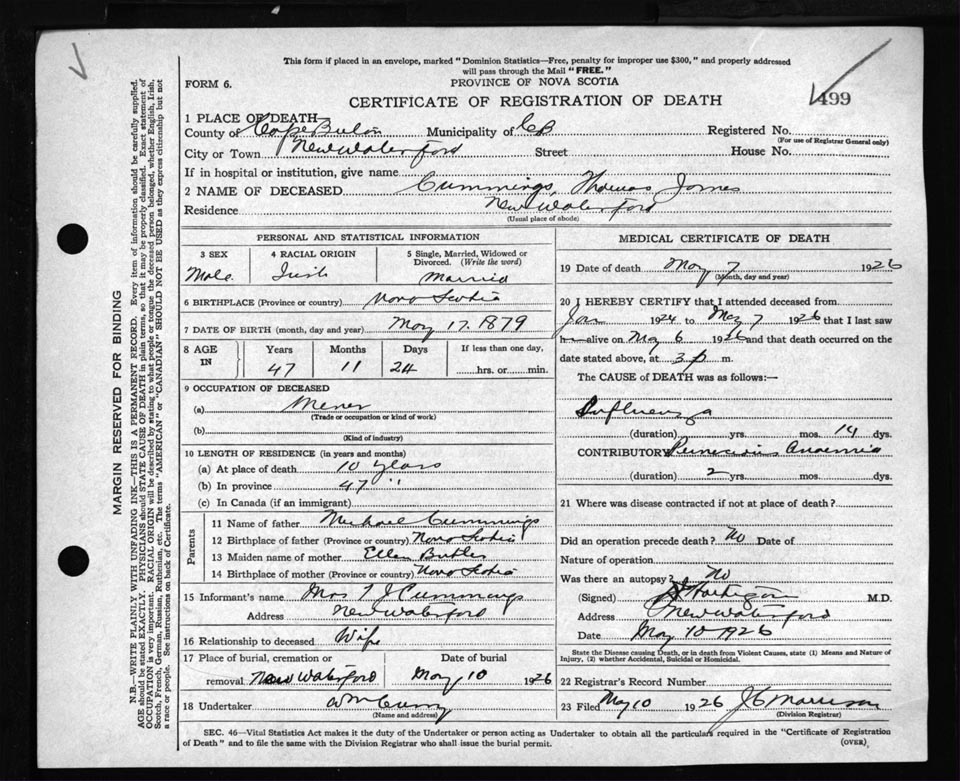 This form if placed in an envelope, marked "Dominion Statistics—Free, penalty for improper use $300," and properly addressed
will pass through the Mail "FREE."
FORM 6.
PROVINCE OF NOVA SCOTIA
CERTIFICATE OF REGISTRATION OF DEATH
499
1 PLACE OF DEATH—
County of Cape Breton Municipality of CB Registered No.
(For use of Registrar General only)
City or Town New Waterford Street House No.
If in hospital or institution, give name
2 NAME OF DECEASED Cummings, Thomas James
Residence New Waterford
(Usual place of abode)
PERSONAL AND STATISTICAL INFORMATION
3 SEX 4 RACIAL ORIGIN 5 Single, Married, Widowed or Divorced. (Write the word)
Male Irish Married
6 BIRTHPLACE (Province or country) Nova Scotia
7 DATE OF BIRTH (month, day and year) May 17. 1879
8 AGE IN Years Months Days If less than one day,
47 11 24 hrs. or min.
9 OCCUPATION OF DECEASED
(a) Miner
(Trade or occupation or kind of work)
(b)
(Kind of industry)
10 LENGTH OF RESIDENCE (in years and months)
(a) At place of death 10 years
(b) In province 47 "
(c) In Canada (if an immigrant)
Parents
11 Name of father Michael Cummings
12 Birthplace of father (Province or country) Nova Scotia
13 Maiden name of mother Ellen Butler
14 Birthplace of mother (Province or country) Nova Scotia
15 Informant's name Mrs T J Cummings
Address New Waterford
16 Relationship to deceased Wife
17 Place of burial, cremation or removal New Waterford Date of burial May 10 1926
18 Undertaker Wm Curry
(Name and address)
MEDICAL CERTIFICATE OF DEATH
19 Date of death May 7 1926
(Month, day and year)
20 I HEREBY CERTIFY that I attended deceased from
Jan 1924 to May 7 1926 that I last saw
h alive on May 6 1926 and that death occurred on the
date stated above, at 3 p m.
The CAUSE of DEATH was as follows:—
Influenza
(duration) yrs. mos. 14 dys.
CONTRIBUTORY Pernicious Anaemia
(duration) 2 yrs. mos. dys.
21 Where was disease contracted if not at place of death?
Did an operation precede death? No Date of
Nature of operation
Was there an autopsy? No
(Signed) Hartigan M.D.
Address New Waterford
Date May 10 1926
State the Disease causing Death, or in death from Violent Causes, state (1) Means and Nature of
Injury, (2) whether Accidental, Suicidal or Homicidal.
22 Registrar's Record Number
23 Filed May 10 1926 J C Morrison
(Division Registrar)
SEC. 46—Vital Statistics Act makes it the duty of the Undertaker or person acting as Undertaker to obtain all the particulars required in the "Certificate of Registration
of Death" and to file the same with the Division Registrar who shall issue the burial permit.
(OVER)
MARGIN RESERVED FOR BINDING
N.B.—WRITE PLAINLY WITH UNFADING INK—THIS IS A PERMANENT RECORD. Every item of information should be carefully supplied.
AGE should be stated EXACTLY. PHYSICIANS should STATE CAUSE OF DEATH in plain terms, so that it may be properly classified. Exact statement of
OCCUPATION is very important. RACIAL ORIGIN will be described by stating to what people or tongue the deceased person belonged, whether English, Irish,
Scotch, French, German, Russian, Ruthenian, etc. The terms "AMERICAN" or "CANADIAN" SHOULD NOT BE USED as they express citizenship but not
a race or people. See instructions on back of Certificate.